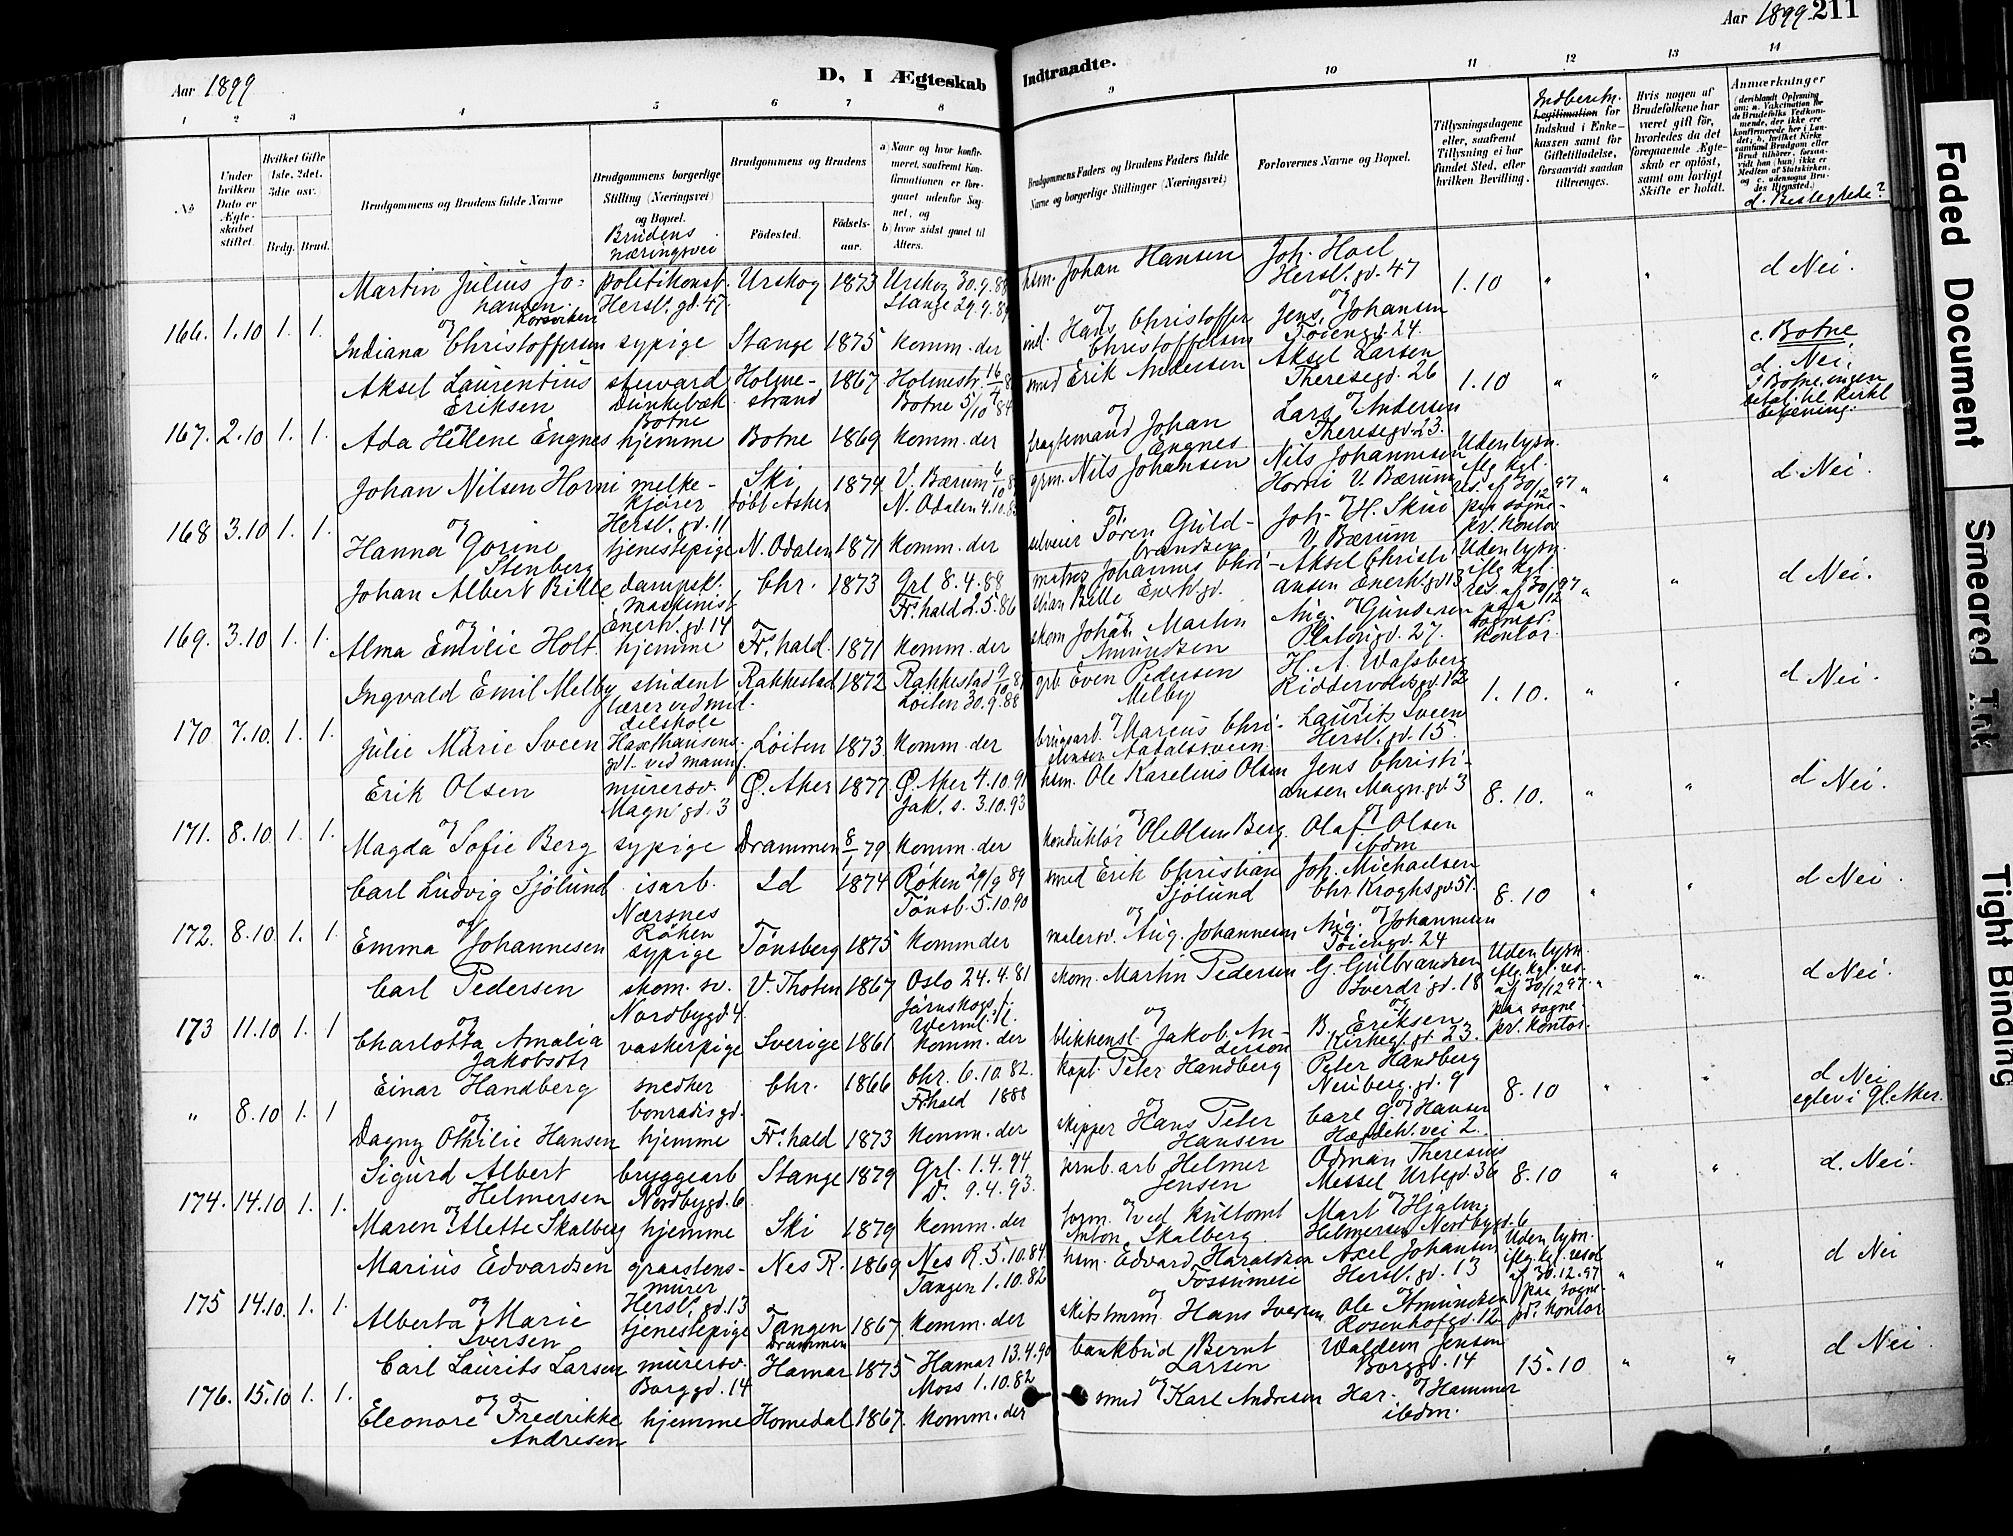 Aar 1899
D, I Ægteskab
Indtraadte.
Aar 1899. 211
1 2 3 4 5 6 7 8 9 10 11 12 13 14
No
Under hvilken Dato er Ægteskabet stiftet.
Hvilket Gifte (1ste, 2det, 3die osv.
Brdg. Brud.
Brudgommens og Brudens fulde Navne
Brudgommens borgerlige Stilling (Næringsvei) og Bopæl.
Brudens næringsvei
Brudgommens og Brudens
Fødested.
Fødselsaar.
a) Naar og hvor konfirmeret, saafremt Konfirmationen er foregaaet udenfor Sognet, og
b) hvor sidst gaaet til Alters.
Brudgommens Faders og Brudens Faders fulde Navne og borgerlige Stillinger (Næringsvei)
Forlovernes Navne og Bopæl.
Tillysningsdagene eller, saafremt Tillysning ei har fundet Sted, efter hvilken Bevilling.
Indberetn.
Legitimation for Indskud i Enkekassen samt for Giftetilladelse, forsaavidt saadan tiltrænges.
Hvis nogen af Brudefolkene har været gift før, hvorledes da det foregaaende Ægteskab er opløst, samt om lovligt Skifte er holdt.
Anmærkninger
d. Beslegtede?
166. 1.10 1. 1.
Martin Julius Johansen politikonst. Herslb. gd. 47. Urskog 1873 Urskog 30.9.88 Stange 29.9.89
hsm. Johan Hansen Joh. Hoel Herslb. gd. 47 1.10 " " d Nei.
og Korsviken
Indiana Christoffersen sypige Stange 1875 komm. der
ind. Hans Christoffer Christoffersen Jens Johansen Tøiengd. 24
167. 2.10 1. 1.
Aksel Laurentius Eriksen steward Dunkebæk Botne Holmestrand 1867 Holmestr. Botne 5/10 84
smed Erik Andersen Aksel Larsen Theresegd. 26 1.10 " "
c. Botne
d. Nei.
I Botne ingen
betal. til Kirkl
betjening.
og
Ada Helene Engnes hjemme Botne 1869 komm. der
fragtemand Johan Engnes Lars Andersen Theresegd. 23.
168 3.10 1. 1.
Johan Nilsen Horni melkekjører Herslb. gd. 11 Ski døbt Asker 1874 V. Bærum N. Odalen 4.10.
grm. Nils Johansen Nils Johannesen Horni V. Bærum
Uden lysn. iflg kgl. res. af 30/12 97 paa sogne- pr. kontor " " d. Nei.
og
Hanna Gorine Stenberg tjenestepige N. Odalen 1871 komm. der
selveier Søren Guldbrandsen Joh. H. Skui V. Bærum
169. 3.10 1. 1.
Johan Albert Bille dampsk. maskinist Enerh. gd. 14 Chr. 1873 Grl 8.4.88 Fr.hald 2.5.86
Johannes Christian Bille Enerh. gd. Aksel Christiansen Enerh. gd 13
Uden lysn. iflg kgl. res. af 30/12 97 paa sognepr. kontor " " d Nei.
og
Alma Emilie Holt. hjemme Fr.hald. 1871 komm. der
skom Johan Martin Amundsen Aug. Gundersen Platousgd. 27.
170 7.10. 1. 1.
Ingvald Emil Melby student lærer ved middelskole Rakkestad 1872 Rakkestad Løiten 30.9.88
grb. Even Pedersen Melby H. A. Wassberg Riddervoldsgd. 12 1.10. " " d Nei.
og
Julie Marie Sveen Haxthausens gd 1. ved mann. Løiten 1873 komm. der
brugsarb. Marcus Christensen Aadalssveen Laurits Sveen Herslb. gd. 15.
171. 8.10. 1. 1.
Erik Olsen murersv. Magn. gd. 3 Ø. Aker 1877 Ø. Aker 4.10.91 Jak. s. 3.10.93
hsm. Ole Karelius Olsen Jens Christiansen Magn. gd. 3 8.10. " " d Nei.
og
Magda Sofie Berg sypige Drammen 8/1 79 komm. der
konduktør Ole Olsen Berg. Olaf Olsen ibdm
172. 8.10. 1. 1.
Carl Ludvig Sjölund isarb. Nærsnes Røken Id 1874 Røken 29/9 89 Tønsb. 5.10.90
smed Erik Christian Sjölund Joh. Michaelsen Chr. Kroghs gd 51. 8.10 " " d Nei.
og
Emma Johannesen sypige Tønsberg 1875 komm der
malersv. Aug. Johannesen Aug. Johannesen Tøiengd. 24
173 11.10 1. 1
Carl Pedersen skom. sv. Nordbygd 4. V. Thoten 1867 Oslo 24.4.81
skom. Martin Pedersen G. Gulbrandsen Sverdr. gd. 18
Uden lysn. iflg. kgl. res. af 30/12 97. paa sogne- pr. kontor. " " d Nei.
og
Charlotta Amalia Jakobsdtr vaskerpige Sverige 1861 Järnskogs f. Werml. komm. der
blikkensl. Jakob Anderson B. Eriksen Kirkegd. gd. 23.
" 8.10 1. 1
Einar Handberg snedker Conradis gd. Chr. 1866 Chr. 6.10.82. Fr.hald 1888
kapt. Peter Handberg Peter Handberg Neuberg. gd. 9 8.10 " " d Nei eglev i Gl. Aker.
og
Dagny Othilie Hansen hjemme Fr.hald 1873 komm. der
skipper Hans Peter Hansen Carl G. Hansen vei 2.
174. 14.10 1. 1.
Sigurd Albert Helmersen bryggearb Nordbygd. 6 Stange 1879 Grl. 1.4.94 D. 9.4.93.
jernb. arb Helmer Jensen Odman Theresius Messel Urtegd. 36 8.10 " " d. Nei.
og
Maren Alette Skalberg hjemme Ski 1879 komm. der
form. ved Anton Skalberg. Mart Hjalm. Helmersen Nordbygd. 6
175 14.10. 1. 1.
Marius Edvardsen graastensmurer Herslb. gd. 13 Nes R. 1869 Nes R. 5.10.84 Tangen 1.10.82
hsm. Edvard Haraldsen Axel Johansen Herslb. gd. 13
Uden lysn. iflg. kgl. resol af 30.12.97 paa sogne- pr. kontor " " d Nei
og
Alberta Marie Iversen tjenestepige Tangen Drammen 1867. komm. der
skibstmm. Hans Iversen Ole Amundsen Rosenhofgd. 12
176. 15.10 1. 1.
Carl Laurits Larsen murersv. Borggd. 14 Hamar 1875 Hamar 13.4.90 Moss 1.10.82
bankbud Bernt Larsen Waldem Jensen Borggd. 14 15.10 " " d Nei
og
Eleonore Fredrikke Andresen hjemme Homedal 1867. komm. der
smed Karl Andresen Har. Hammer ibdm.
Faded Document
Smeared Ink
Tight Binding